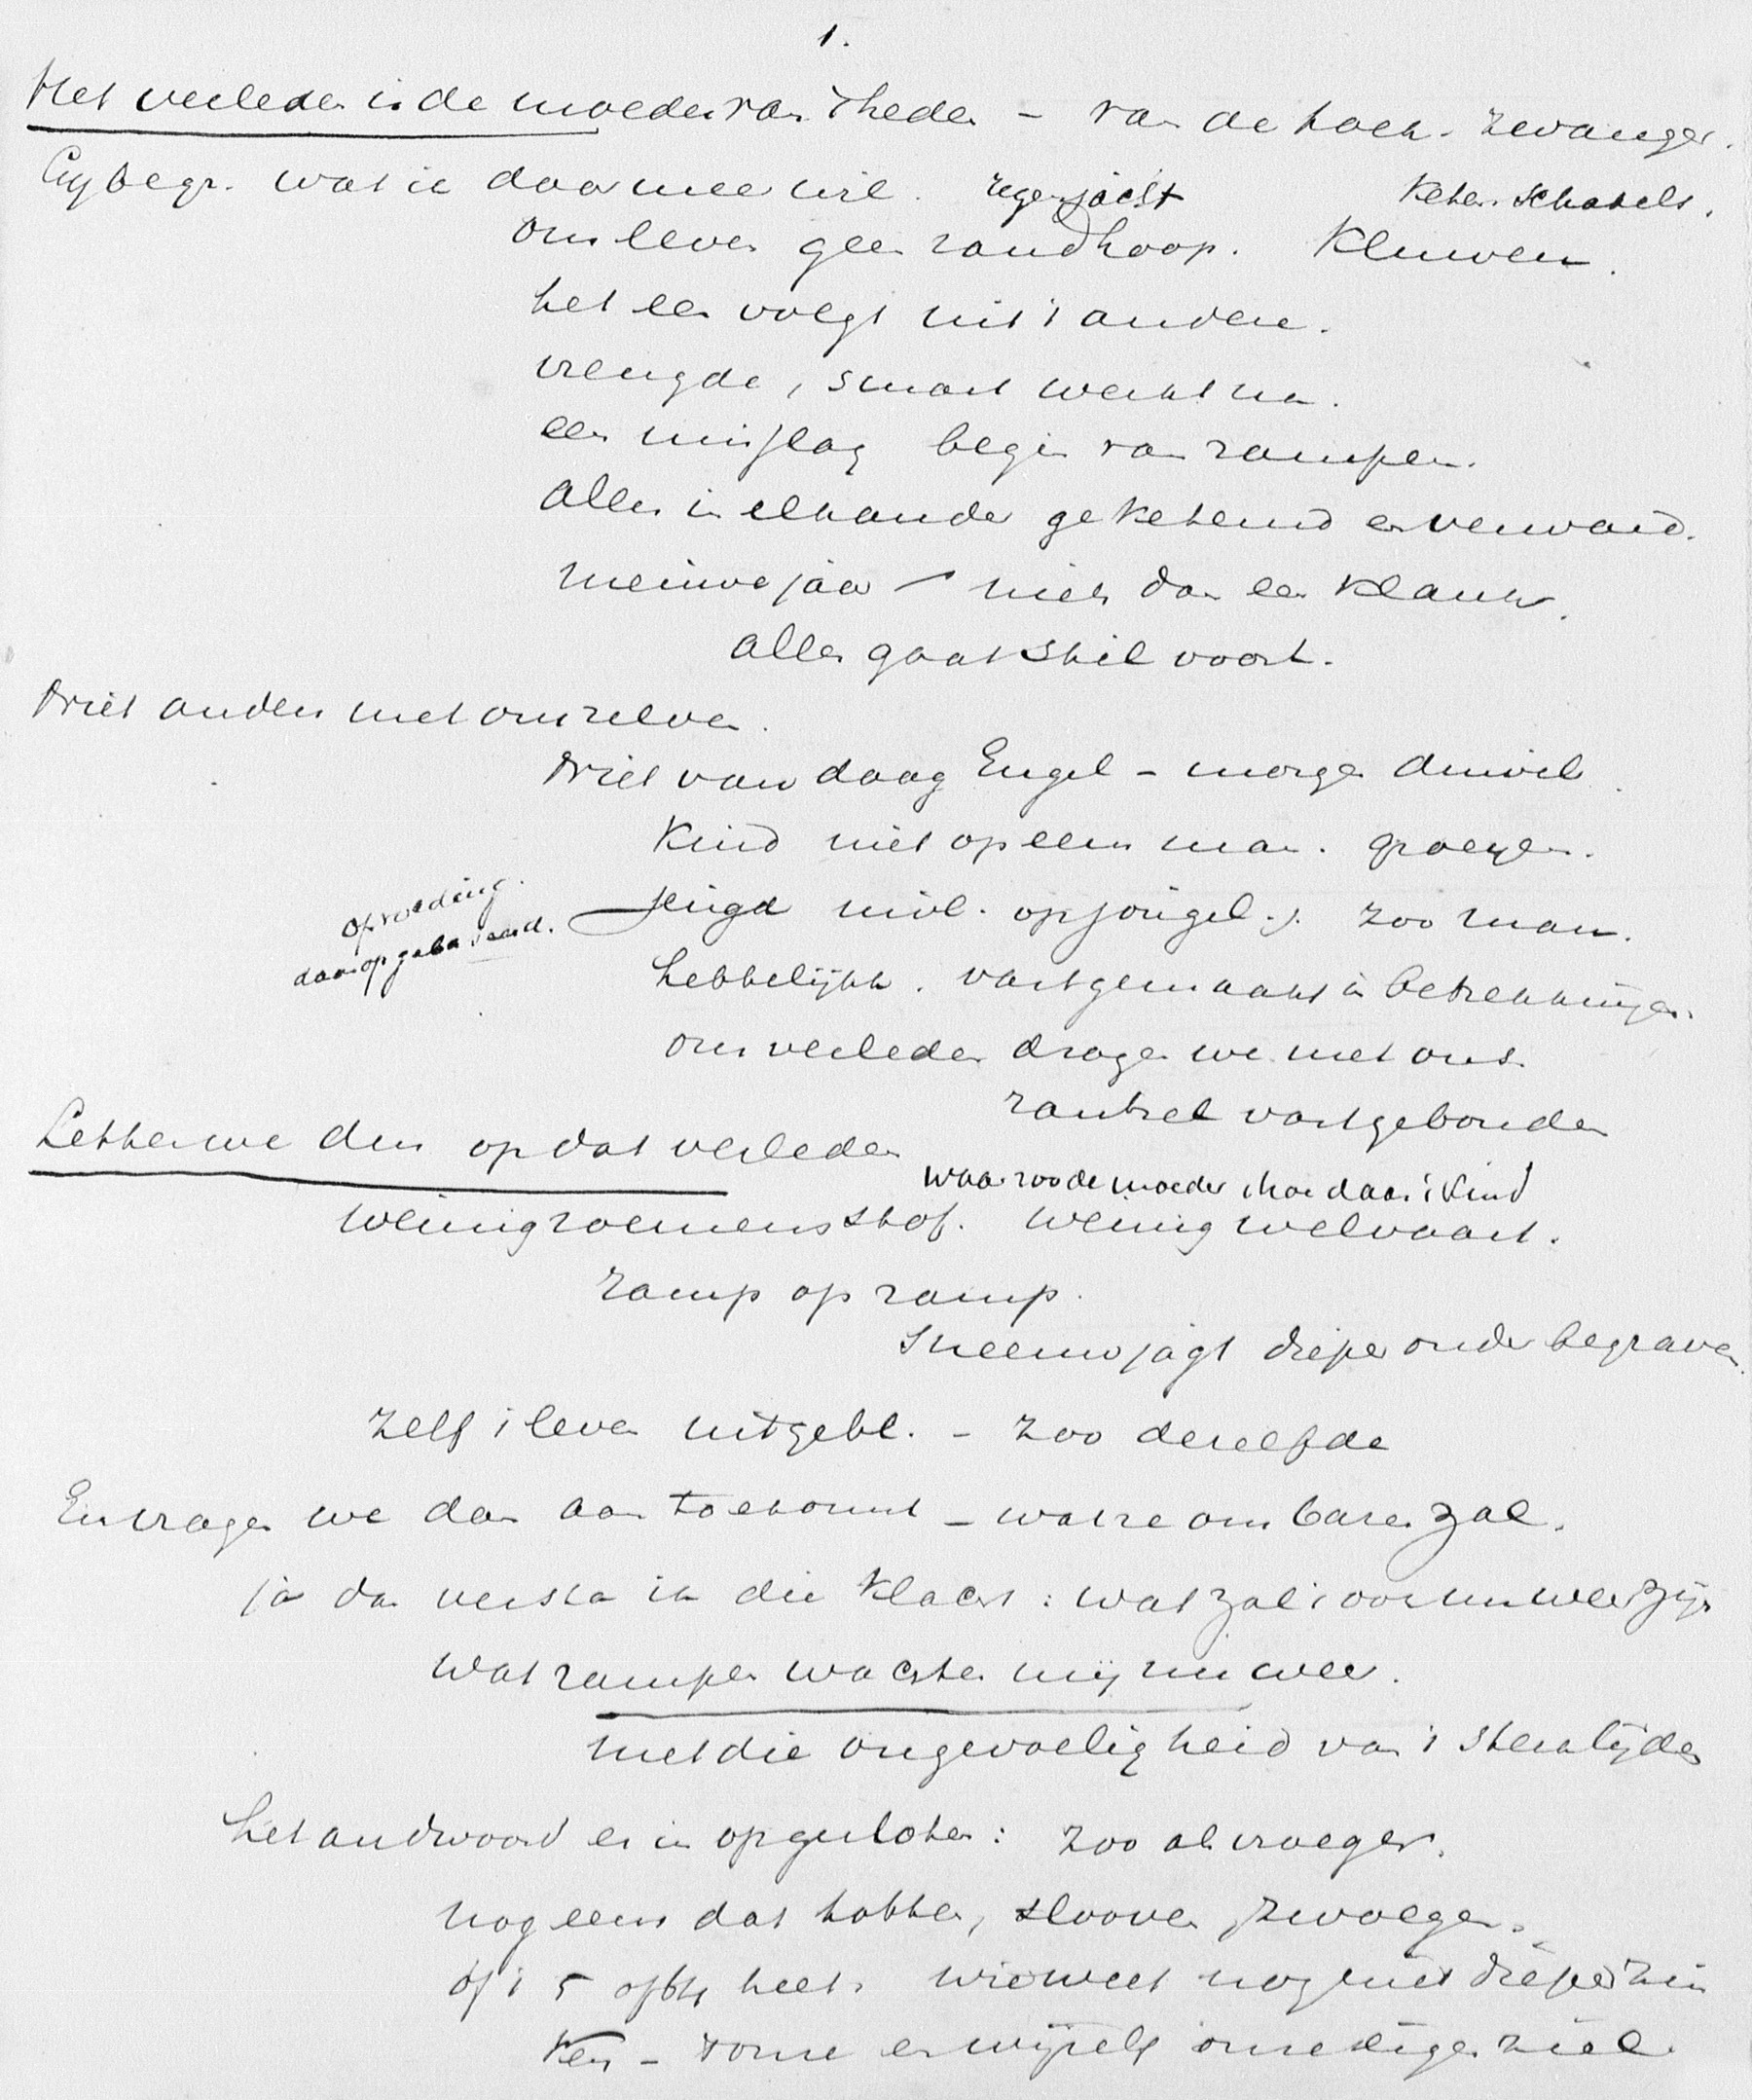 1.
Het verleden is de moeder van 't heden - van de toek. zwanger.
Gij begr. wat ik daarmee wil. regen jacht keten. schakels.
ons leven geen zandhoop. Kluwen.
het een volgt uit 't andere.
vreugde, smart werkt na.
een misslag begin van rampen.
alles in elkander geketend en verward.
nieuwe jaar - niets dan een klank.
alles gaat stil voort.
Niet anders met ons zelven.
Niet van daag Engel - morgen duivel.
Kind niet opeens man. groeyen.
opvoeding. Jeugd invl. op jongel. zoo man.
daarop gebaseerd.
hebbelijkh. vastgemaakt in betrekkingen.
ons verleden dragen we met ons
ransel vastgebonden
Letten we dus op dat verleden
waar zoo de moeder hoe dan 't kind
weinig roemens stof. weinig welvaart.
ramp op ramp.
sneeuwjagt dieper onder begraven.
zelf 't leven uitgebl. - zoo dezelfde
En vragen we dan aan toekomst - wat ze ons baren zal.
ja dan versta ik die klacht: wat zal 't voor nu weer zijn
wat rampen wachten mij nu weer.
met die ongevoeligheid van 't sterk lijden
het andwoord er in opgesloten: zoo als vroeger.
nog eens dat tobben, slooven, zwoegen.
of 't 5 of 64 heet. wie weet nog niet dieper zin
ken - zonk er wijselijk onze eigen ziel.